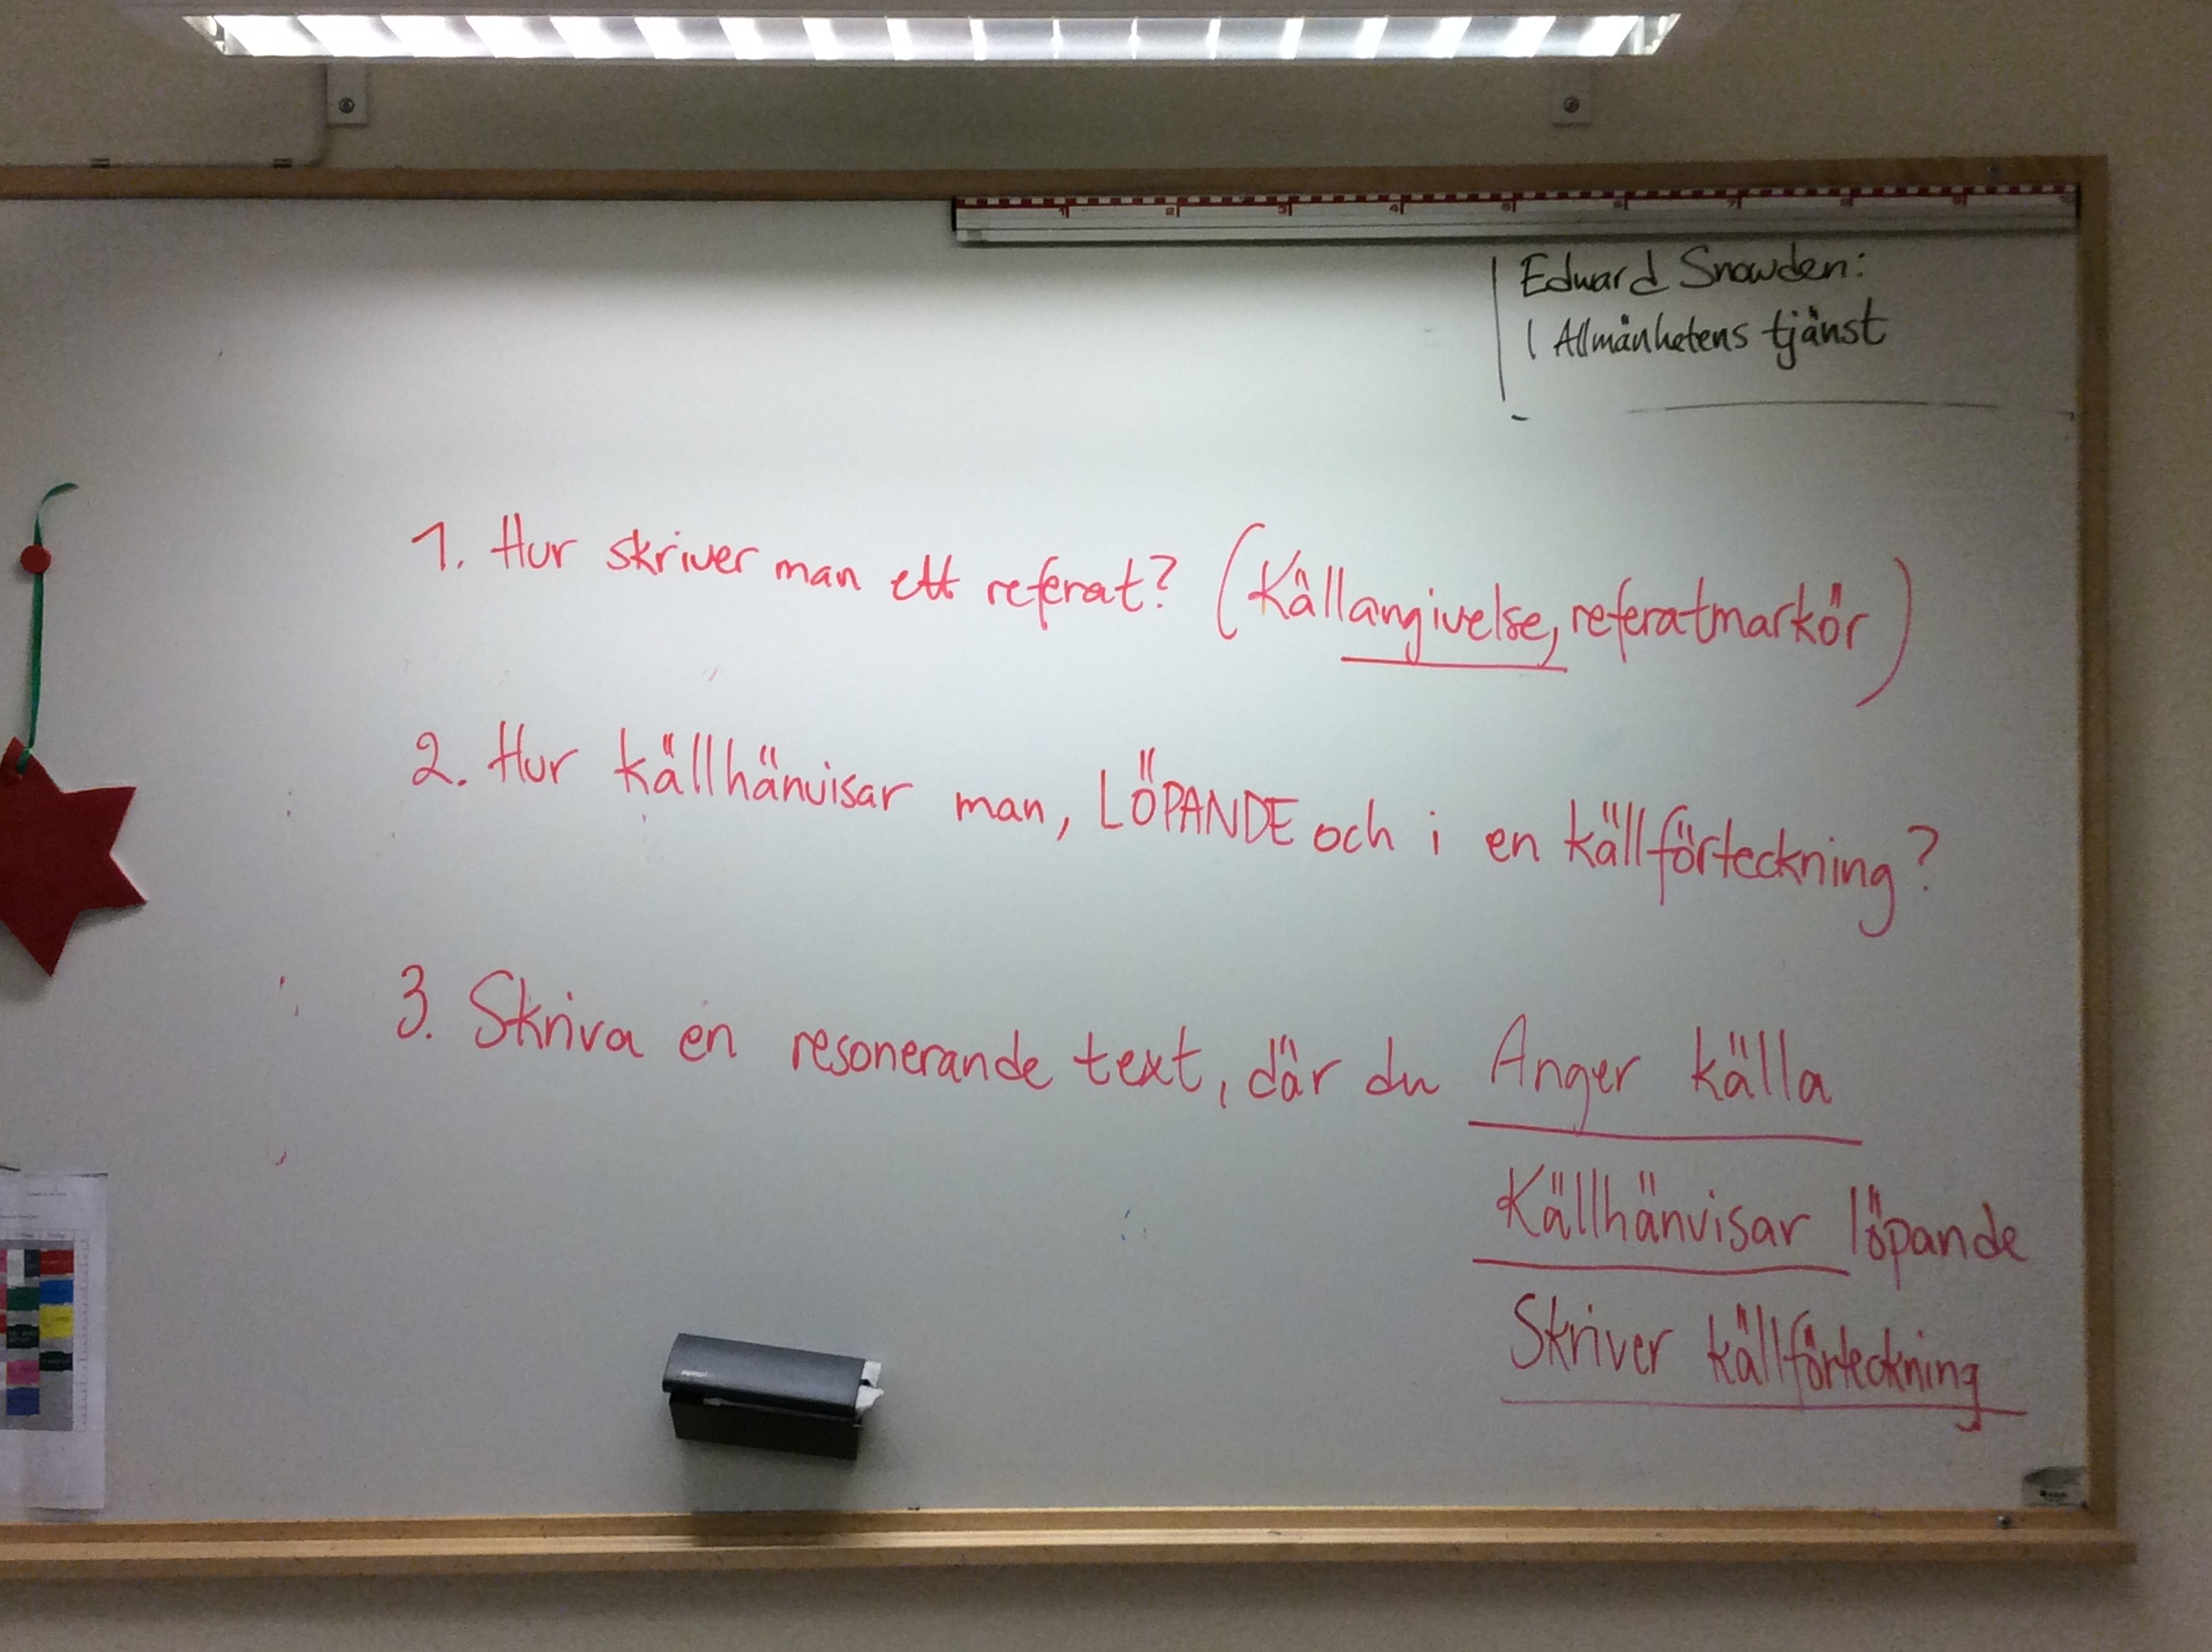 Edward Snowden:
I Allmänhetens tjänst
1. Hur skriver man ett referat? (Källangivelse, referatmarkör)
2. Hur källhänvisar man, LÖPANDE och i en källförteckning?
3. Skriva en resonerande text, där du Anger källa
Källhänvisar löpande
Skriver källförteckning